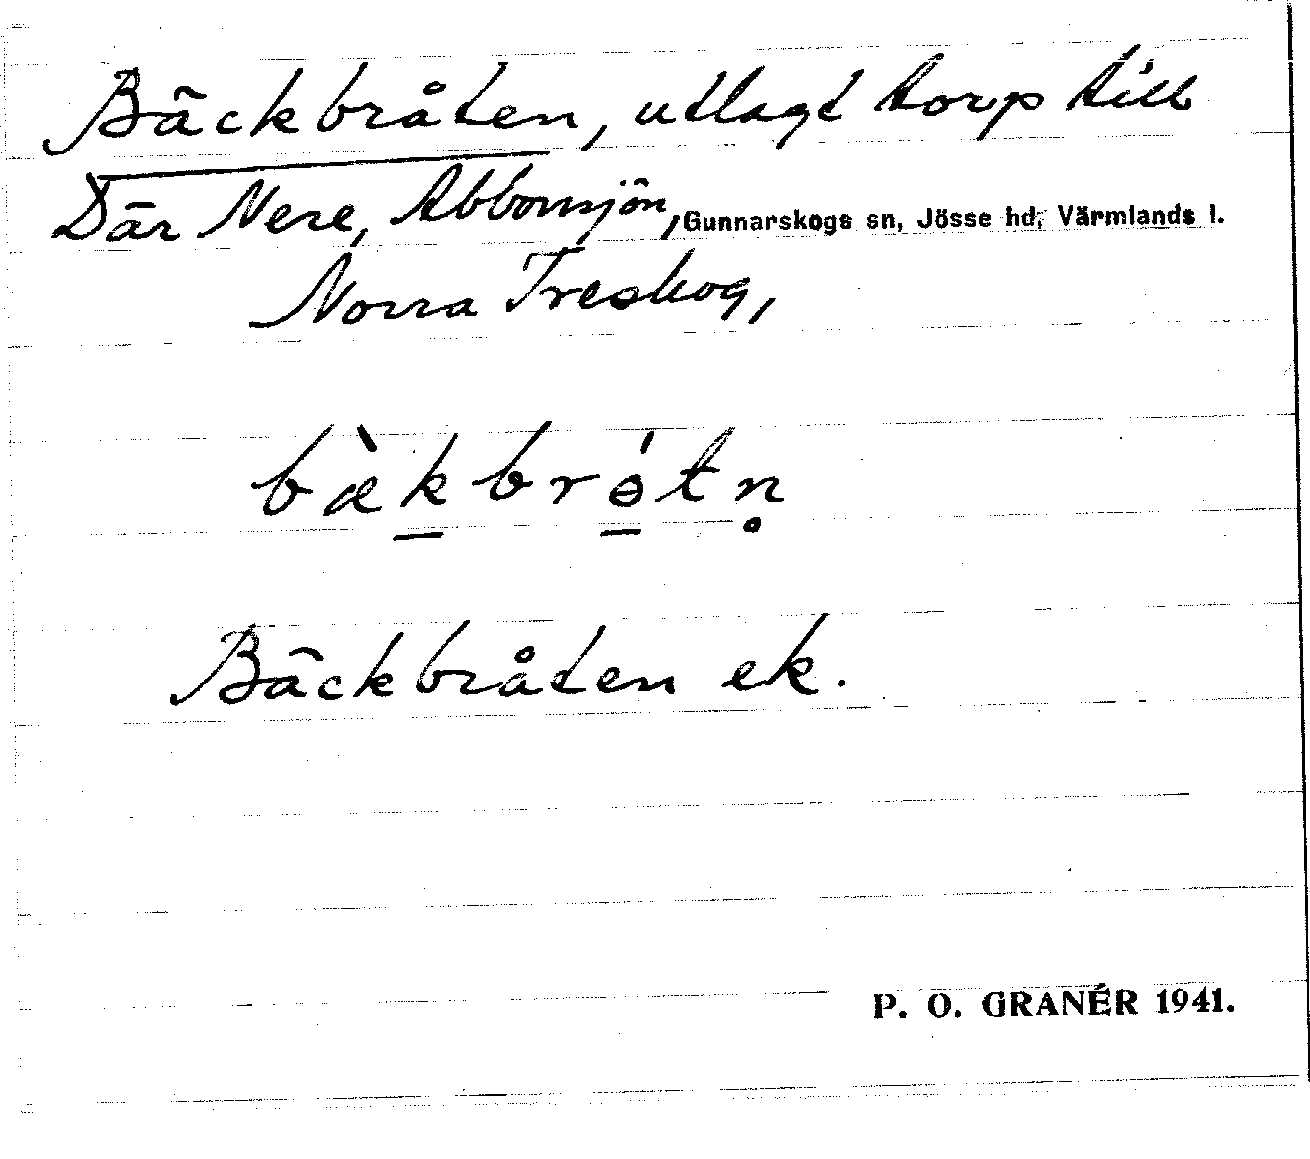 Bäckbråten, utlagt torp till
Där Nere, Abborrsjön, Gunnarskogs sn, Jösse hd, Värmlands l.
Norra Treskog,
bæ̀k̲brɵ̲́tn̥
Bäckbråten ek.
P. O. GRANÉR 1941.